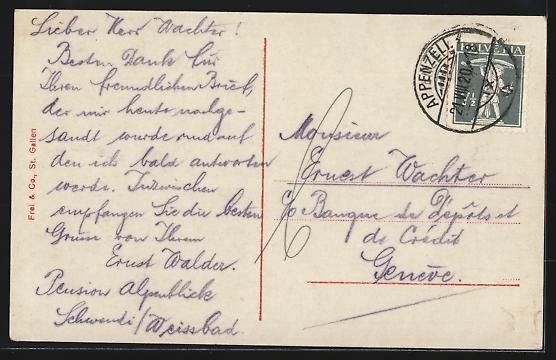 Lieber Herr Wachter!
Besten Dank für
Ihren freundlichen Brief,
der mir heute nachge-
sandt wurde und auf
den ich bald antworten
werde. Inzwischen
empfangen Sie die besten
Grüsse von Ihrem
Ernst Walder.
Pension Alpenblick
Schwendi/Weissbad.
Frei & Co., St. Gallen
APPENZELL
HELVETIA
7½
Monsieur
Ernest Wachter
c/o Banque de Dépôts et
de Crédit
Genève.